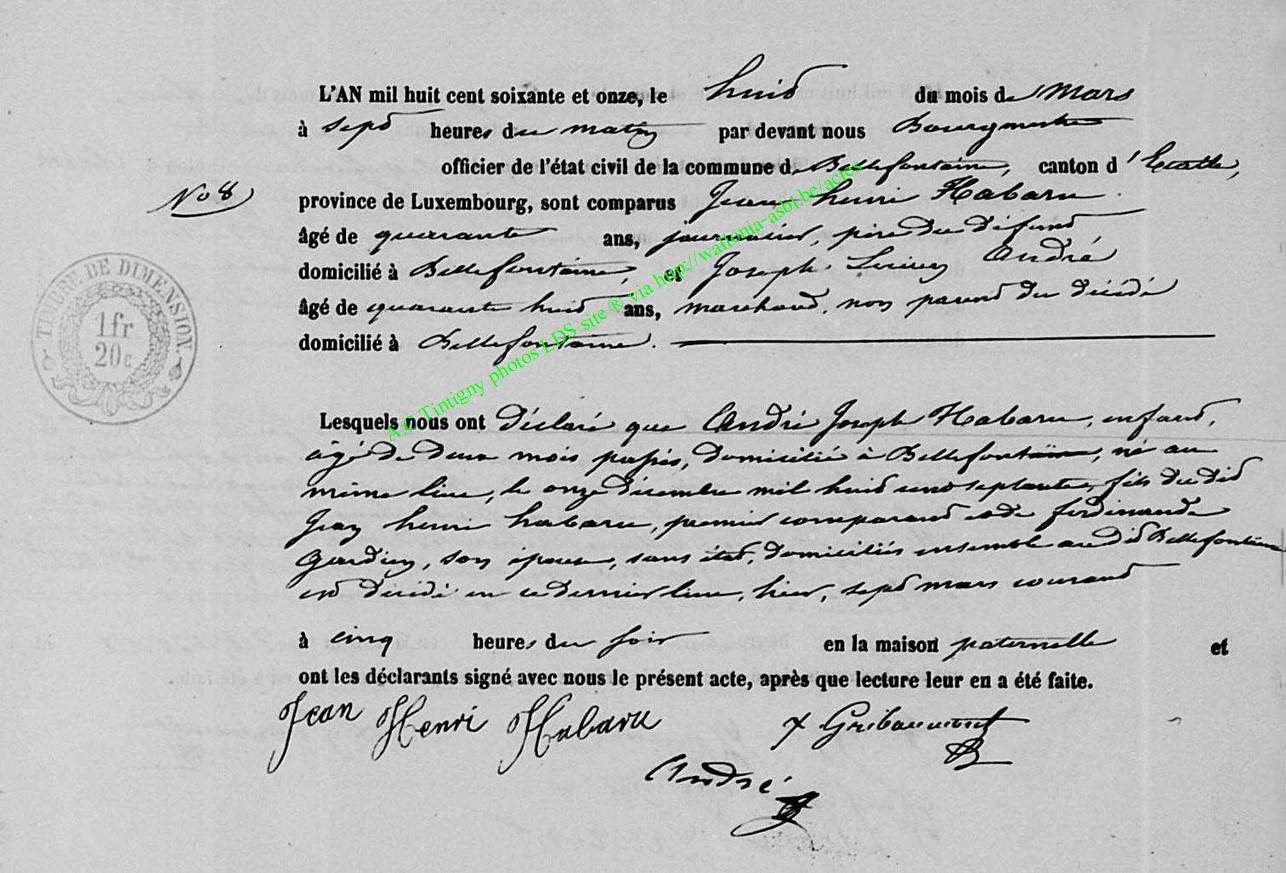 L'AN mil huit cent soixante et onze, le huit du mois de Mars
à sept heures du matin par devant nous Bourgmestre
officier de l'état civil de la commune de Bellefontaine, canton d'Etalle,
No 8
province de Luxembourg, sont comparus Jean henri Habaru
âgé de quarante ans, journalier, père du défunt
domicilié à Bellefontaine, et Joseph André
âgé de quarante huit ans, marchand, non parent du décédé
domicilié à Bellefontaine.
TIMBRE DE DIMENSION.
1 fr
20 c
A.C Tintigny photos LDS site ® via http://wallonia-asbl.be/actes
Lesquels nous ont déclaré que André Joseph Habaru, enfant,
âgé de deux mois passés, domicilié à Bellefontaine, né au
même lieu, le onze décembre mil huit cent septante, fils du dit
Jean henri habaru, premier comparant et de ferdinande
son épouse, sans état, domiciliés ensemble au dit Bellefontaine
est décédé en ce dernier lieu, hier, sept mars courant
à cinq heures du soir en la maison paternelle et
ont les déclarants signé avec nous le présent acte, après que lecture leur en a été faite.
Jean Henri Habaru Gribaumont
André